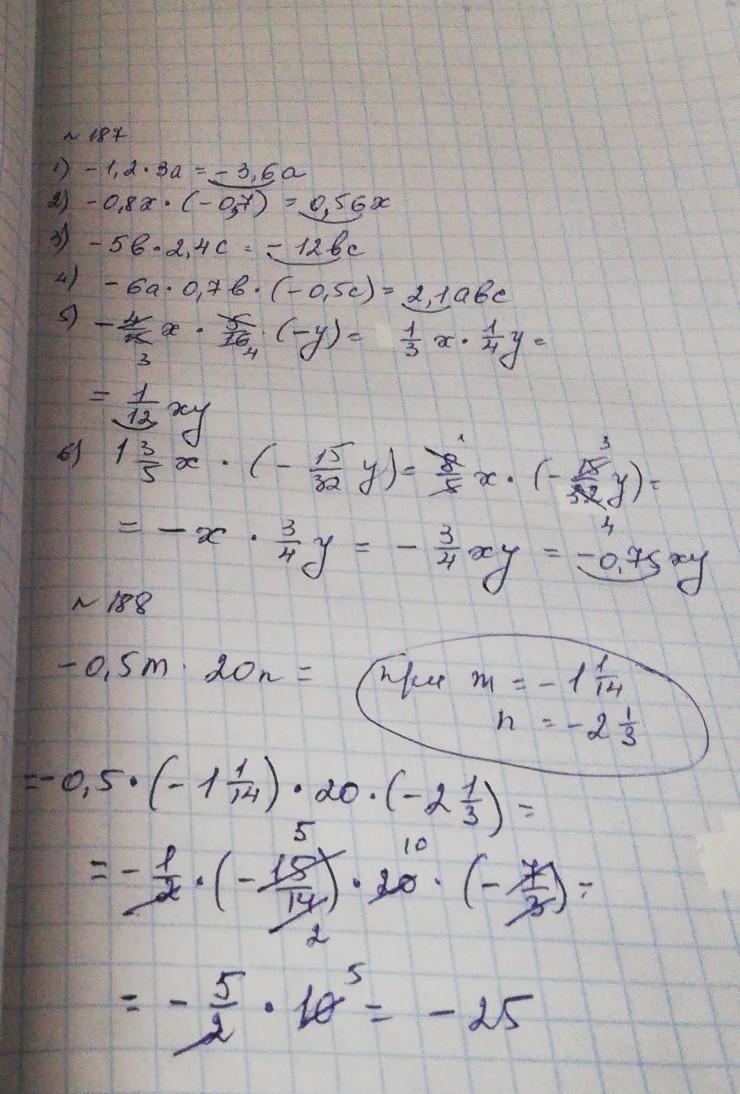 № 187
1) -1,2·3a = -3,6a
2) -0,8x·(-0,7) = 0,56x
3) -5b·2,4c = -12bc
4) -6a·0,7b·(-0,5c) = 2,1abc
5) -4/15 x · 5/16 · (-y) = 1/3 x · 1/4 y =
3 4
= 1/12 xy
6) 1 3/5 x · (-15/32 y) = 8/5 x · (-15/32 y) =
1 3 4
= -x · 3/4 y = -3/4 xy = -0,75xy
№ 188
-0,5m · 20n = при m = -1 1/14
n = -2 1/3
= -0,5·(-1 1/14)·20·(-2 1/3) =
5 10
= -1/2·(-15/14)·20·(-7/3) =
2
= -5/2 · 10 5 = -25